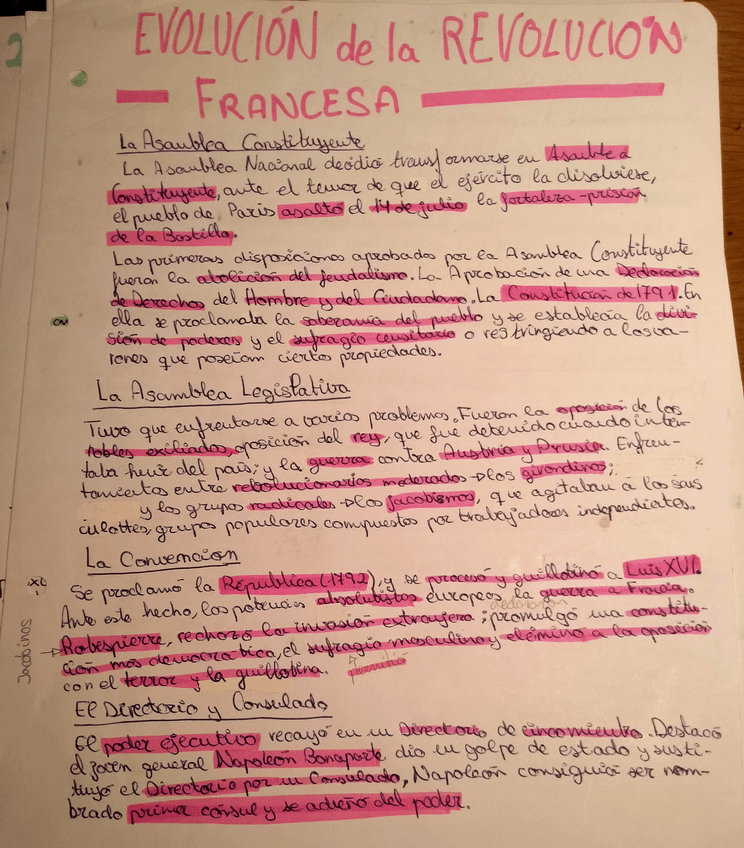 2
EVOLUCIÓN de la REVOLUCIÓN
FRANCESA
La Asamblea Constituyente
La Asamblea Nacional decidió transformarse en Asamblea
Constituyente, ante el temor de que el ejército la disolviese,
el pueblo de París asaltó el 14 de julio la fortaleza-prisión
de la Bastilla.
Las primeras disposiciones aprobadas por la Asamblea Constituyente
fueron la abolición del feudalismo. La Aprobación de una Declaración
de Derechos del Hombre y del Ciudadano. La Constitución de 1791. En
ella se proclamaba la soberanía del pueblo y se establecía la divi-
sión de poderes y el sufragio censitario o restringiendo a los va-
rones que poseían ciertas propiedades.
La Asamblea Legislativa
Tuvo que enfrentarse a varios problemas. Fueron la oposición de los
nobles exiliados, oposición del rey, que fue detenido cuando inten-
taba huir del país; y la guerra contra Austria y Prusia. Enfren-
tamientos entre rebolucionarios moderados → los girondinos;
y los grupos radicales → los jacobinos, que agitaban a los sans
culottes, grupos populares compuestos por trabajadores independientes.
La Convención
Se proclamó la República (1792), y se procesó y guillotinó a Luis XVI.
Ante este hecho, las potencias absolutistas europeas la guerra a Francia.
declararon
→ Robespierre, rechazó la invasión extranjera; promulgó una constitu-
ción más democrática, el sufragio masculino y eliminó a la oposición
con el terror y la guillotina.
permitió
Jacobinos
El Directorio y Consulado
El poder ejecutivo recayó en un Directorio de cinco miembros. Destacó
el joven general Napoleón Bonaparte, dio un golpe de estado y susti-
tuyó el Directorio por un Consulado, Napoleón consiguió ser nom-
brado primer cónsul y se adueñó del poder.